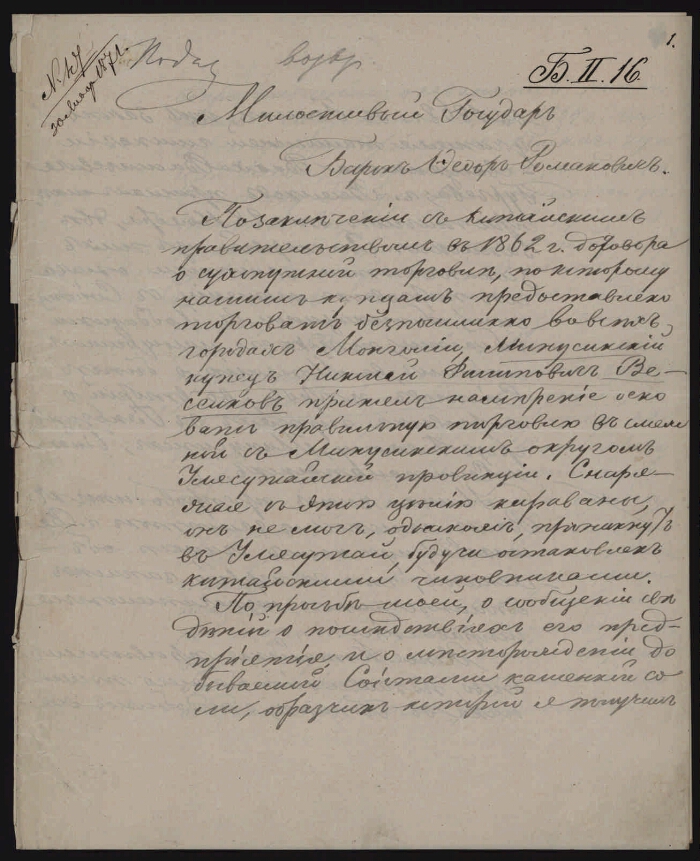 1.
№ 47
30 Января 1871 г.
Б. II. 16.
Милостивый Государь
Баронъ Ѳедоръ Романовичъ.
По заключеніи съ Китайскимъ
правительствомъ въ 1862 г. договора
о сухопутной торговлѣ, по которому
нашимъ купцамъ предоставлено
торговать безпошлинно во всѣхъ
городахъ Монголіи, Минусинскій
купецъ Николай Филиповичъ Ве-
селковъ принялъ намѣреніе осно
вать правильную торговлю въ смеж
ной съ Минусинскимъ округомъ
Улясутайской провинціи. Снаря-
жая съ этой цѣлію караваны,
онъ не могъ, однакожъ, проникнуть
въ Улясутай, будучи остановленъ
китайскими чиновниками.
По просьбѣ моей, о сообщеніи свѣ
дѣній о послѣдствіяхъ его пред-
пріятія, и о мѣсторожденіи до
бываемой Соіотами каменной со
ли, образчикъ которой я получилъ